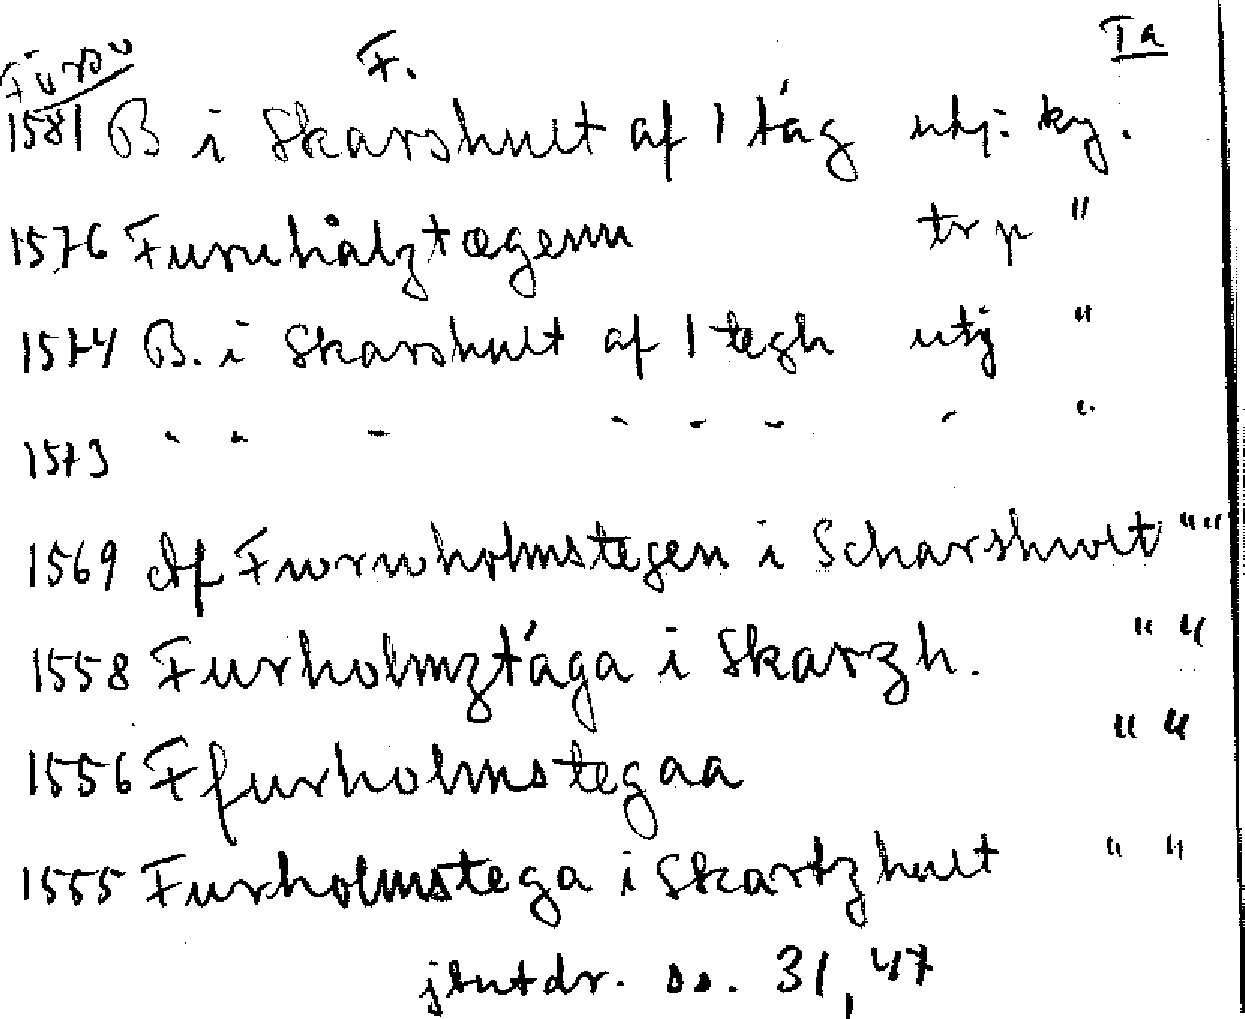 Furu F. Ta
1581 B i Skarshult af 1 tág utj. ky.
1576 Furuhålztægenn trp "
1574 B. i Skarshult af 1 tegh utj "
1573 " " " " " " " "
1569 Af Fwrwholmstegen i Scharshwlt " "
1558 Furholmztága i Skarzh. " "
1556 Ffurholmstegaa " "
1555 Furholmstega i Skartzhult " "
jbutdr. ss. 31, 47